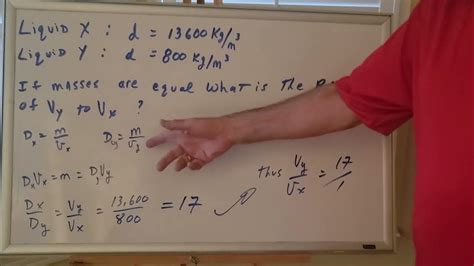 Liquid X : d = 13600 Kg/m³
Liquid Y : d = 800 Kg/m³
If masses are equal what is the
of Vy to Vx ?
Dx = m/Vx Dy = m/Vy
DxVx = m = DyVy
Dx/Dy = Vy/Vx = 13,600/800 = 17
thus Vy/Vx = 17/1